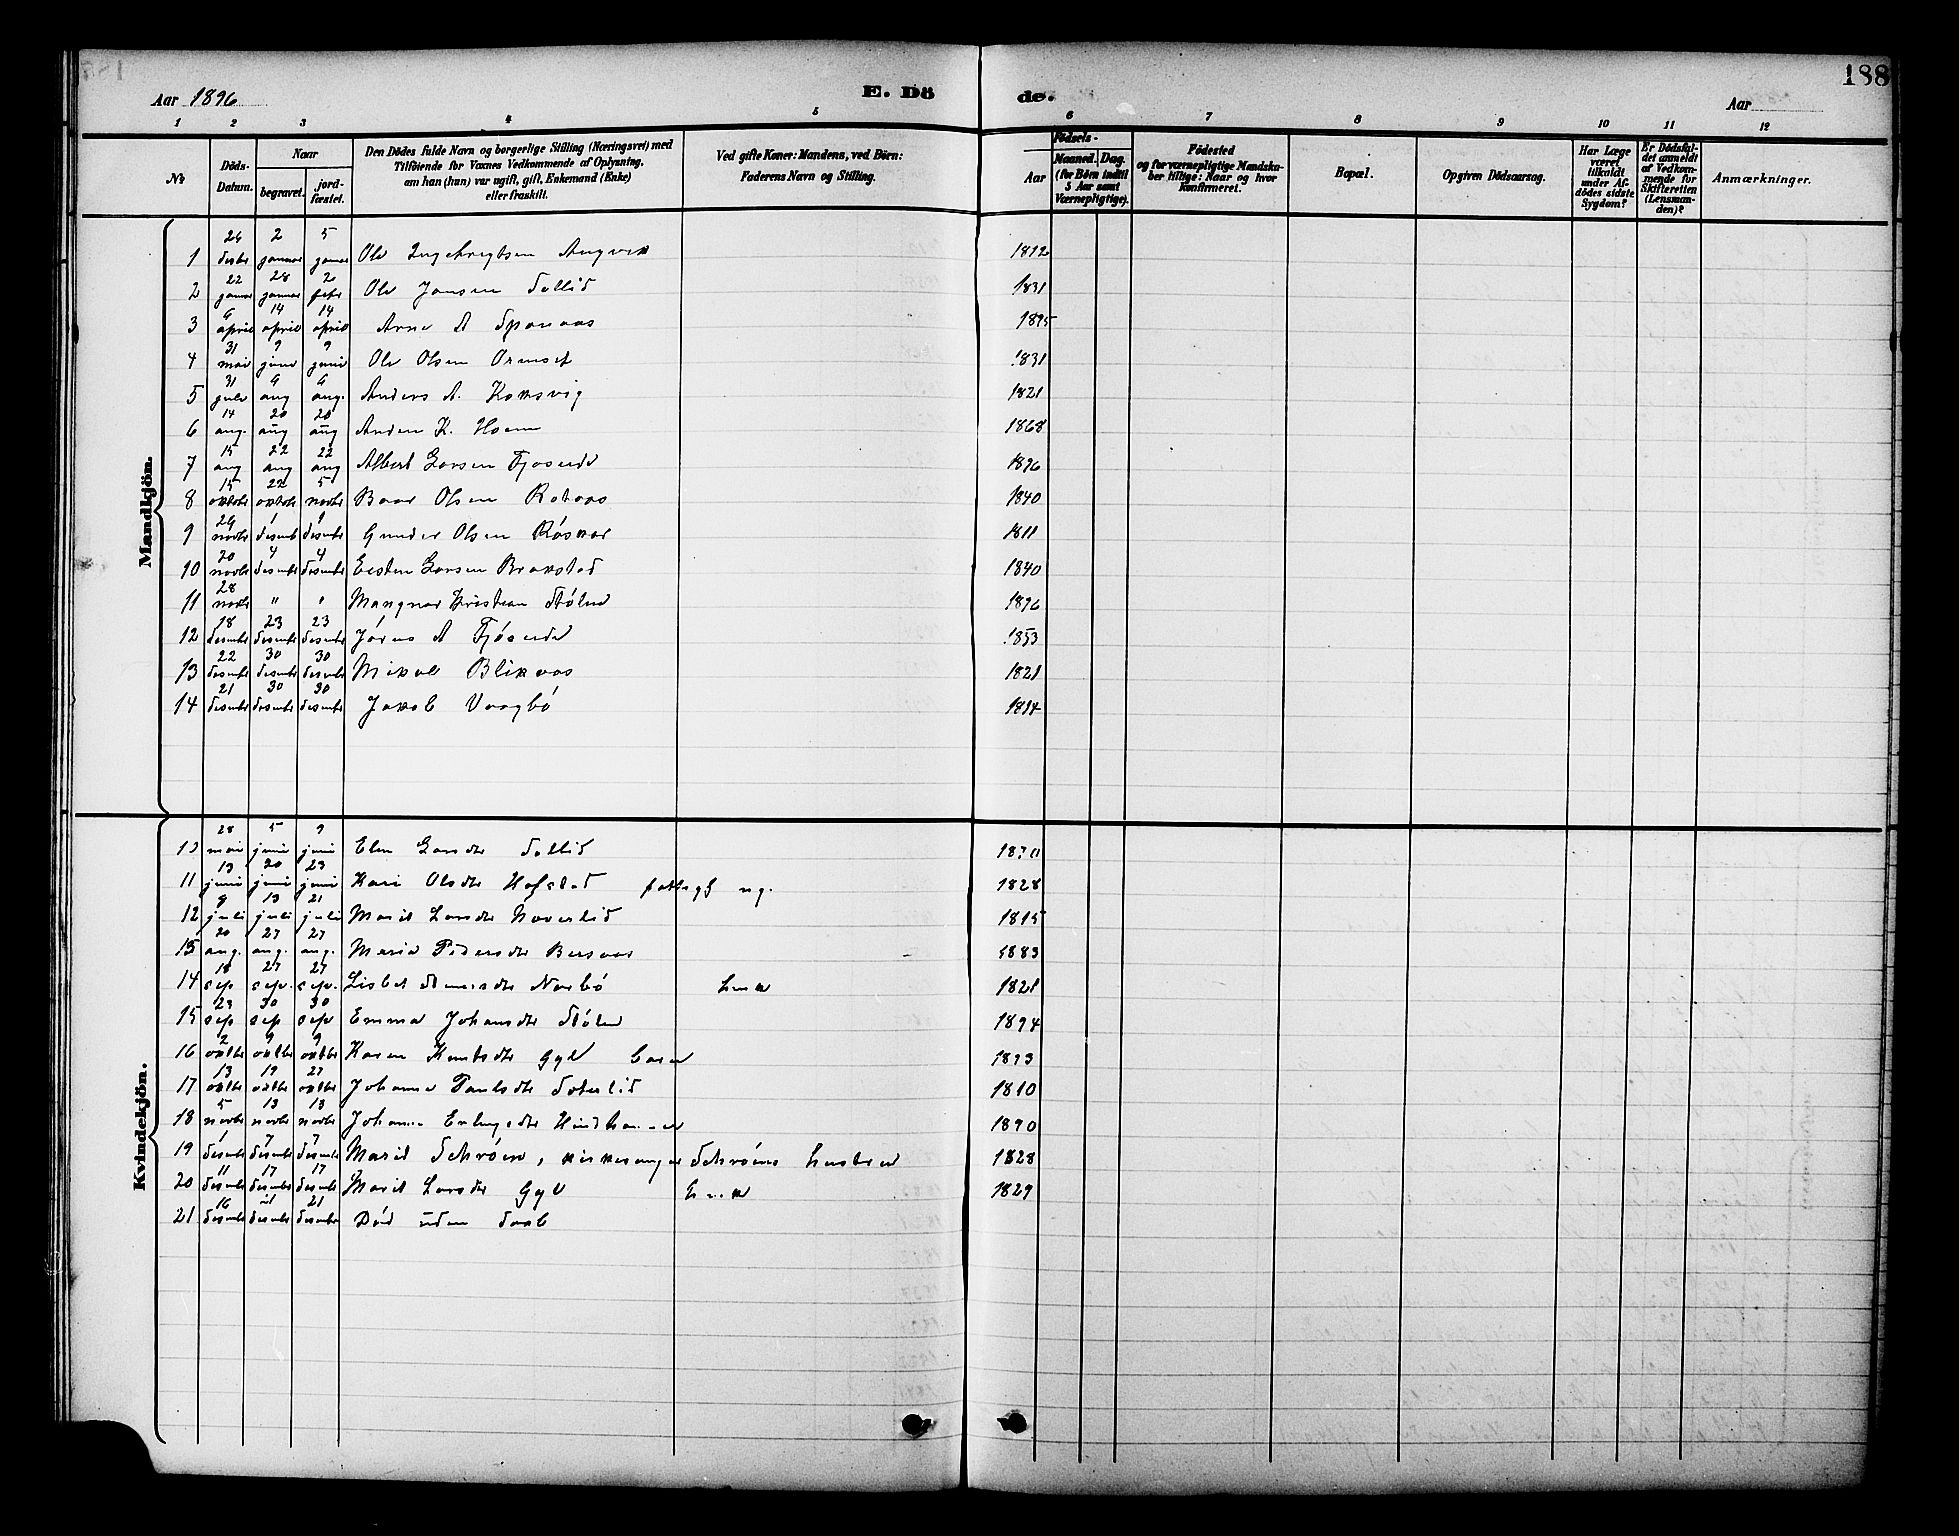 188
Aar 1896
E. Döde.
Aar
1 2 3 4 5 6 7 8 9 10 11 12
No
Döds-Datum.
Naar
begravet.
jordfæstet.
Den Dödes fulde Navn og borgerlige Stilling (Næringsvei) med Tilföiende for Voxnes Vedkommende af Oplysning, om han (hun) var ugift, gift, Enkemand (Enke) eller fraskilt.
Ved gifte Koner: Mandens, ved Börn: Faderens Navn og Stilling.
Födsels-
Aar
Maaned. Dag.
(for Börn indtil 5 Aar samt Værnepligtige).
Födested og for værnepligtige Mandskaber tillige: Naar og hvor Konfirmeret.
Bopæl.
Opgiven Dödsaarsag.
Har Læge været tilkaldt under Afdödes sidste Sygdom?
Er Dödsfaldet anmeldt af Vedkommende for Skifteretten (Lensmanden)?
Anmærkninger.
Mandkjön.
1 26 desbr 2 januar 5 januar Ole Ingebrigtsen Angvik 1812
2 22 januar 28 januar 2 febr Ole Jonsen Tellid 1831
3 april 14 april 14 april Arne A 1895
4 31 mai 9 juni 9 juni Ole Olsen Ormset 1831
5 31 juli 6 aug 6 aug. Anders A. Koksvig 1821
6 14 aug. 20 aug 20 aug Anders K. Hoem 1868
7 15 aug 22 aug 22 aug Albert Larsen Fjøseide 1896
8 15 oktobr 22 oktobr 5 novbr Baar Olsen Rotaas 1840
9 24 novbr 1 desembr 9 desembr Gunder Olsen Røskar 1811
10 20 novbr 4 desembr 4 desembr Eesten Larsen Brakstad 1840
11 28 novbr " " Mangnar Kristian Støler 1896
12 18 desembr 23 desembr 23 desembr Jørens A Fjøseide 1853
13 22 desembr 30 desembr 30 desembr Mikal Blikaas 1821
14 21 desembr 30 desembr 30 desembr Jakob Vaagbø 1814
Kvindekjön.
10 28 mai 5 juni 9 juni Elen Larsdtr Tellid
11 13 juni 20 juni 23 juni Kari Olsdtr Hofstad fattigf ug. 1828
12 9 juli 13 juli 21 juli Marit Larsdtr Haverlid 1815
13 20 aug. 27 aug. 27 aug. Maria Pedersdtr Bersaas 1883
14 18 sep 27 sep. 27 sep. Lisbet Norbø 1821
15 23 sep 30 sep 30 sep Emma Johansdtr Støler 1894
16 2 oktbr 9 oktbr 9 oktbr Karen Knutsdtr Gyl 1893
17 13 oktbr 19 oktbr 27 oktbr Johanna Paulsdtr 1810
18 5 novbr 13 novbr 13 novbr Johanna 1890
19 1 desembr 7 desembr 7 desembr Marit Schrøen, kirkesanger Schrøens hustru 1828
20 11 desembr 17 desembr 17 desembr Marit Larsdtr Gyl 1829
21 16 desembr desembr 21 desembr Død uden daab